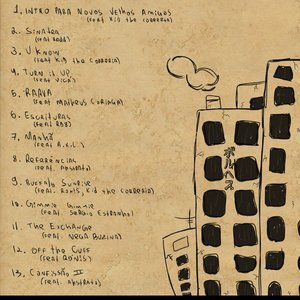 1. INTRO PARA NOVOS VELHOS AMIGOS
(FEAT KID THE CORRERIA)
2. SINATRA
3. U KNOW
(FEAT KID THE CORRERIA)
4. TURN IT UP
5. RAAVA
(FEAT MATHEUS CORINGA)
6. ESCRITURAS
7. MANHÃ
(FEAT A.X.L.)
8. REFERÊNCIAS
(FEAT. ABSURATO)
9. BUFFALO SUNRISE
(FEAT. RON!S, KID THE CORRERIA)
10. GIMMIE GIMMIE
(FEAT. SERGIO ESTRANHO)
11. THE EXCHANGE
(FEAT. NEGA BUZINA)
12. OFF THE CUFF
(FEAT RON!S)
13. CONFISSÃO II
ボルヘス